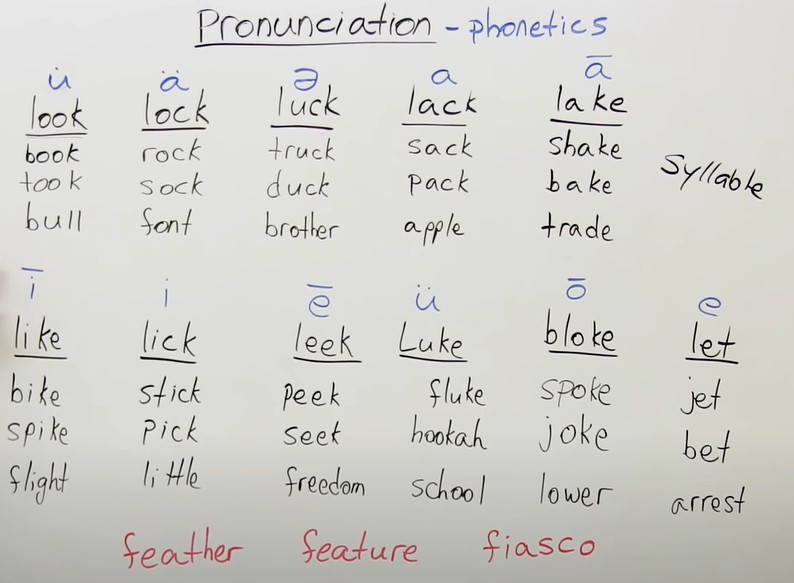 Pronunciation - phonetics
u̇ ä ə a ā
look lock luck lack lake
book rock truck sack shake
took sock duck pack bake
bull font brother apple trade
Syllable
ī i ē ü ō e
like lick leek Luke bloke let
bike stick peek fluke spoke jet
spike pick seek hookah joke bet
flight little freedom school lower arrest
feather feature fiasco